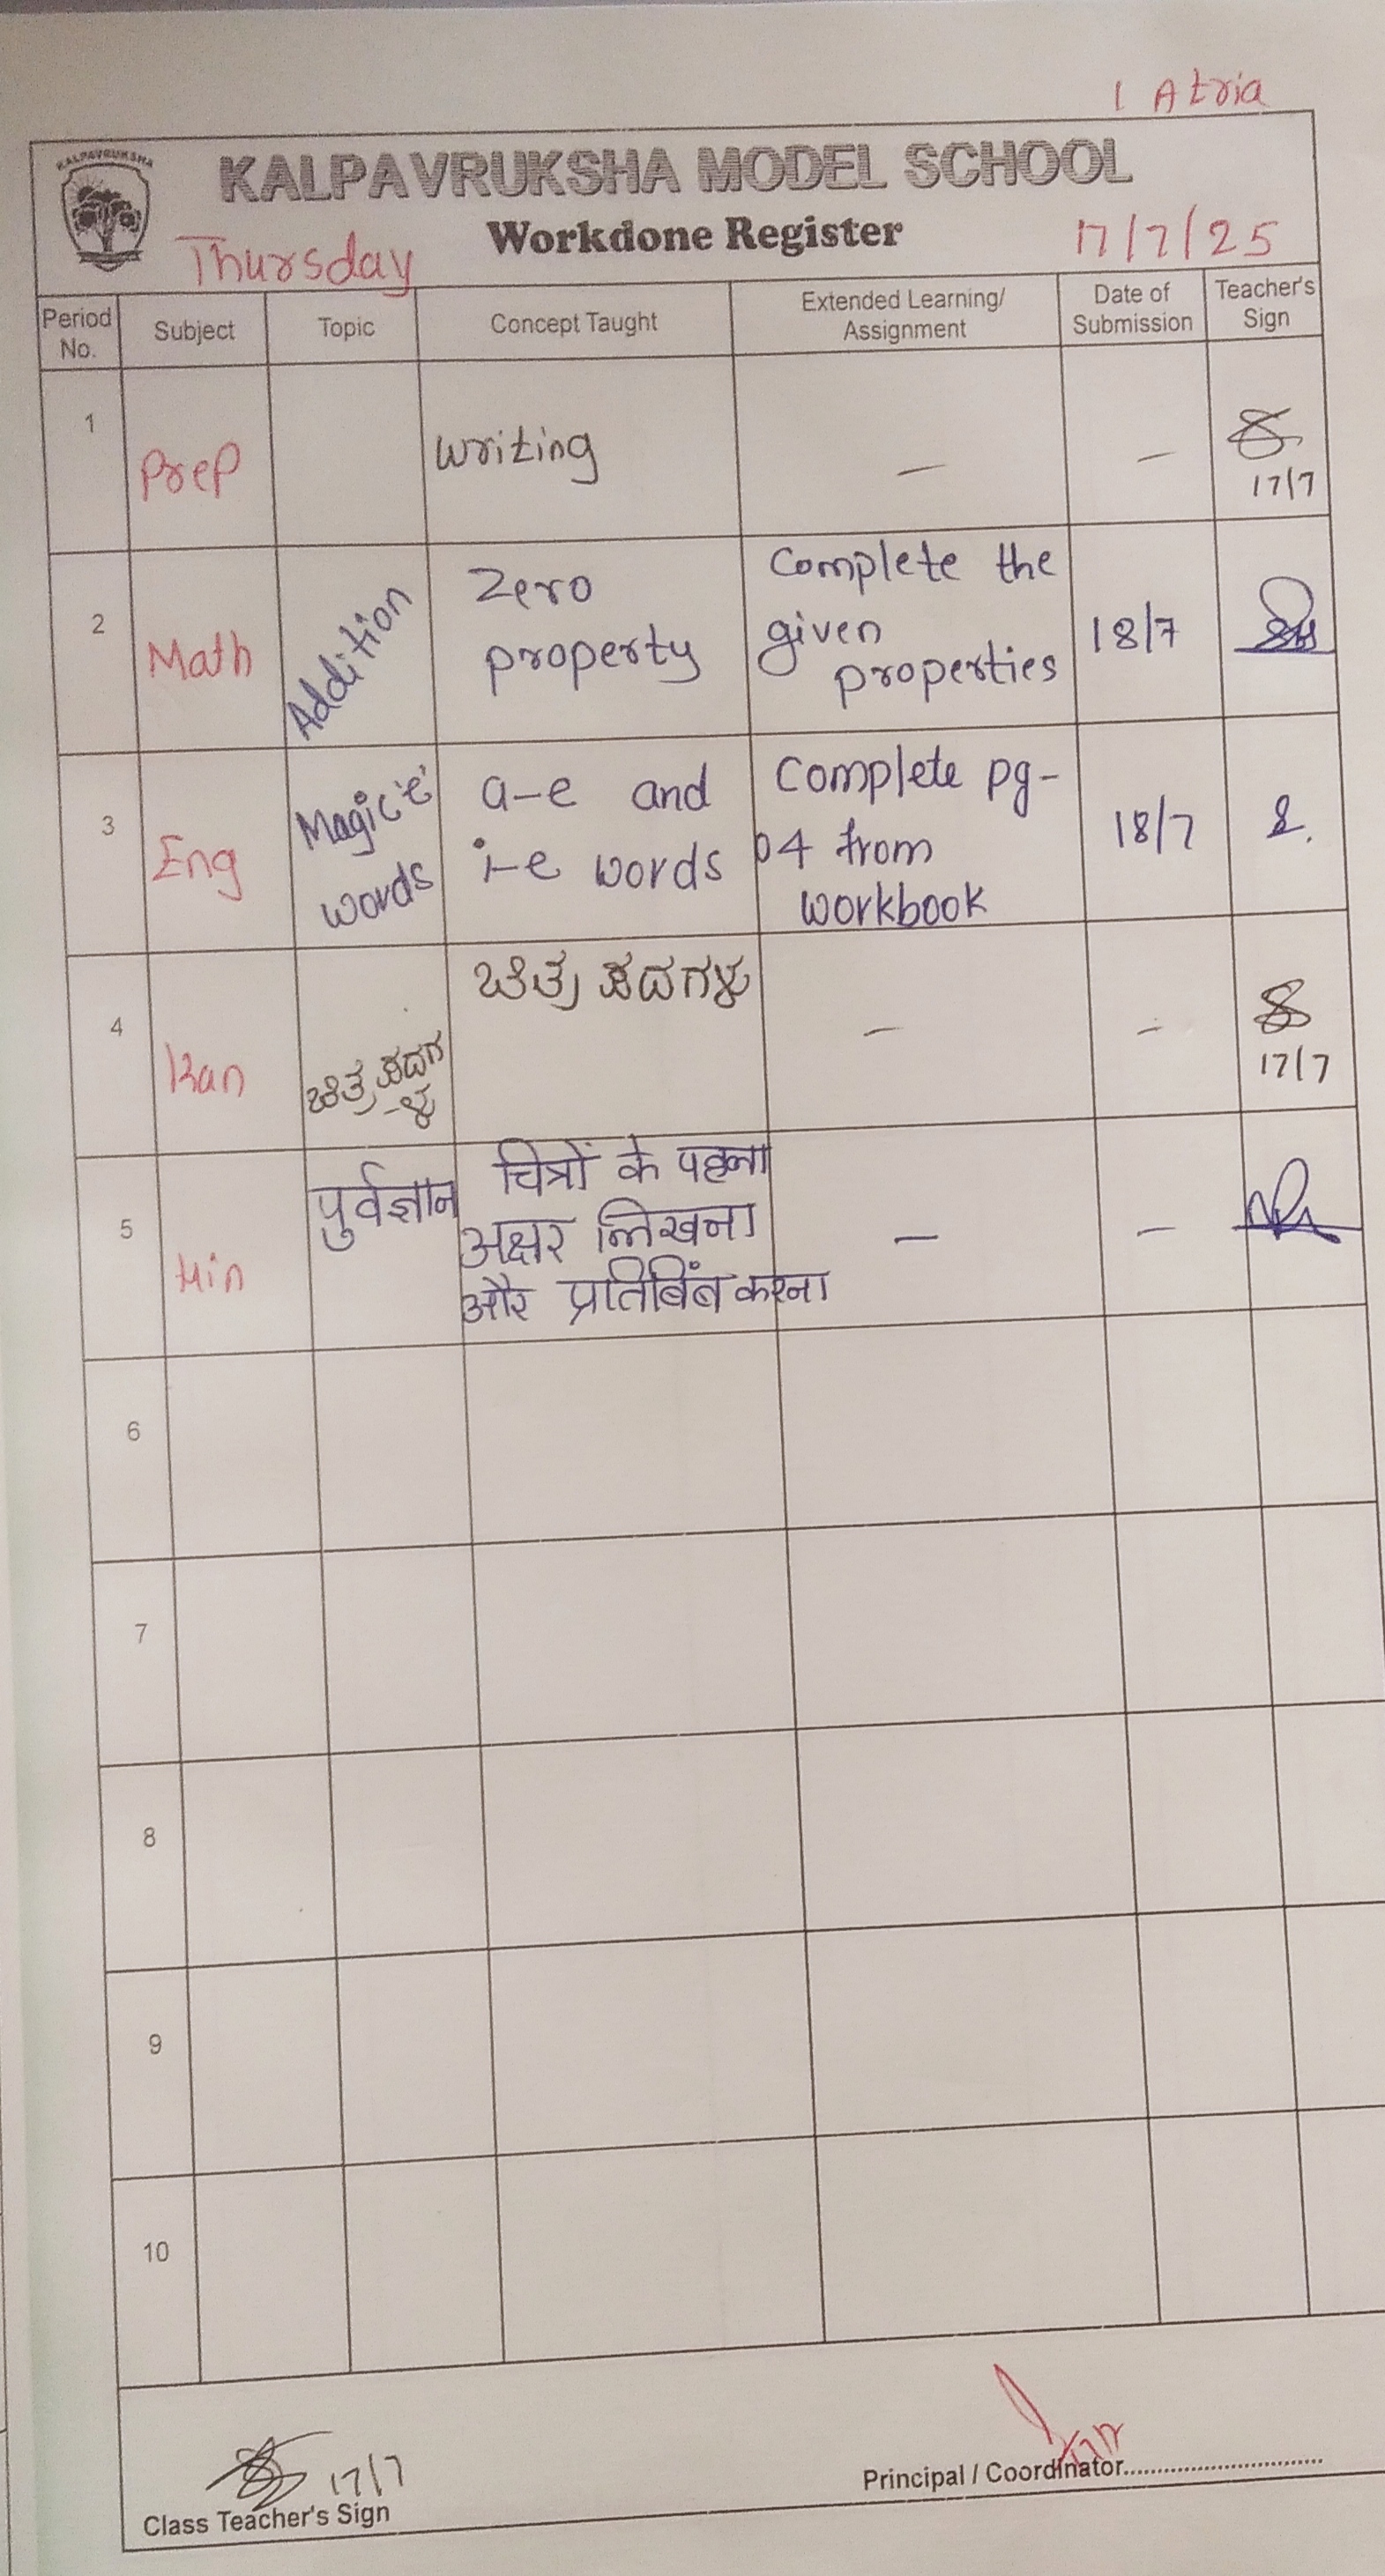 1 Atria
KALPAVRUKSHA
KALPAVRUKSHA MODEL SCHOOL
Workdone Register
Thursday 17/7/25
Period No. Subject Topic Concept Taught Extended Learning/ Assignment Date of Submission Teacher's Sign
1 Prep writing — — 17/7
2 Math Addition Zero property Complete the given properties 18/7
3 Eng Magic 'e' words a-e and i-e words Complete pg- 04 from workbook 18/7
4 Kan ಚಿತ್ರ ಪದಗ -ಳು ಚಿತ್ರ ಪದಗಳು — — 17/7
5 Hin पुर्वज्ञान चित्रों के पहला अक्षर लिखना और प्रतिबिंब करना — —
6
7
8
9
10
17/7
Class Teacher's Sign
Principal / Coordinator